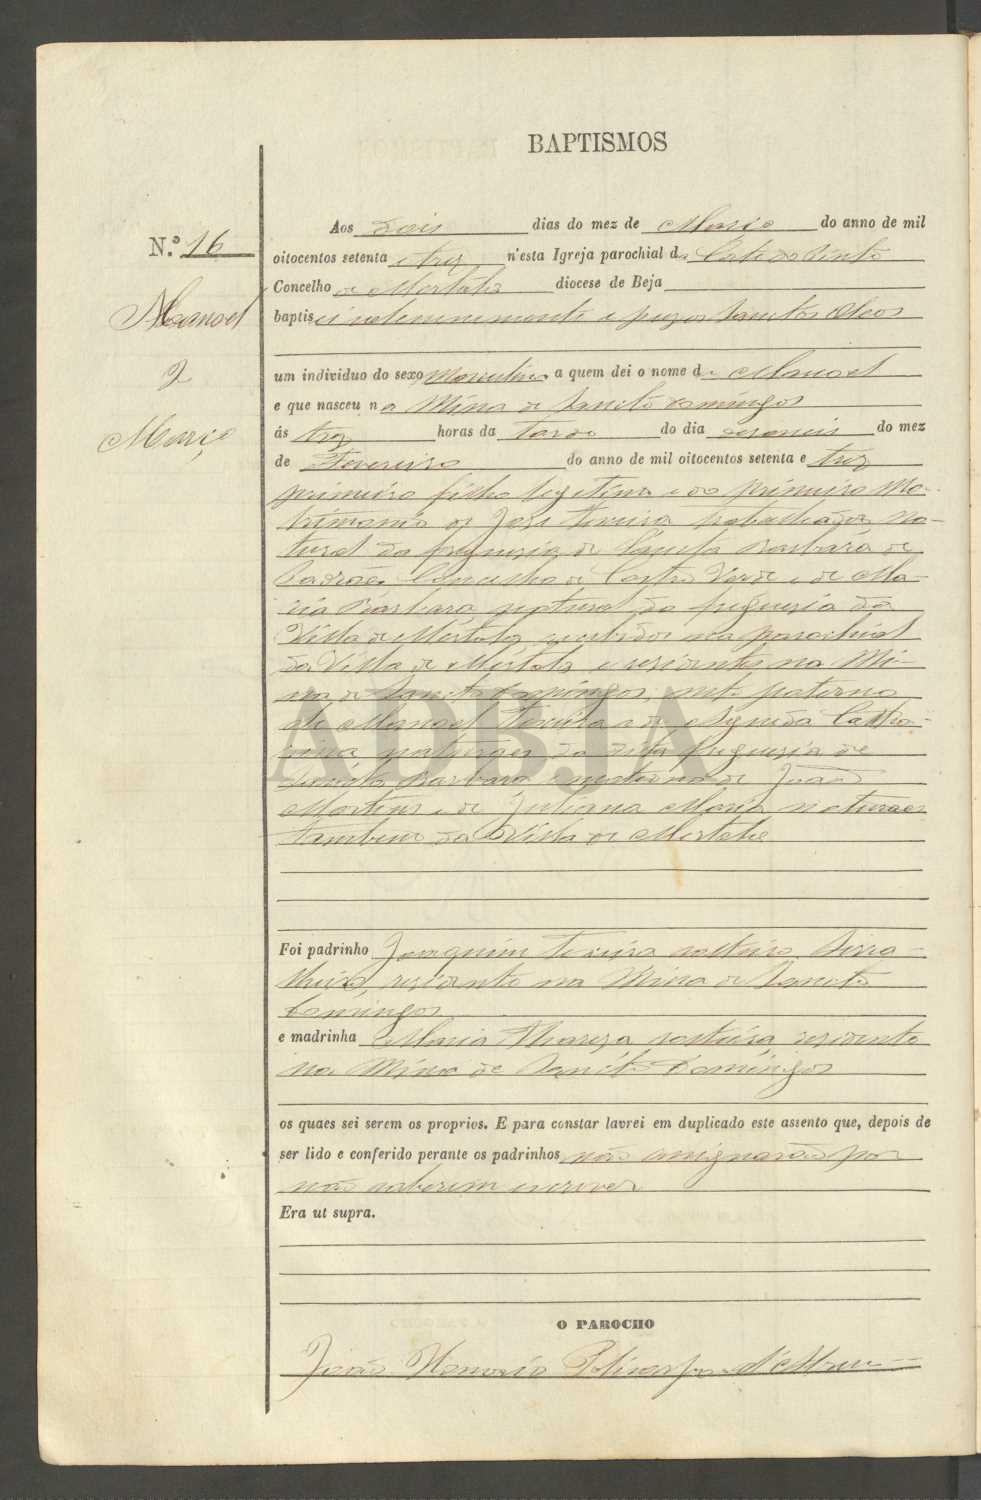 BAPTISMOS
N.º 16
Manoel
2
Março
Aos dois dias do mez de Março do anno de mil
oitocentos setenta e trez n'esta Igreja parochial de Corte do Pinto
Concelho de Mertola diocese de Beja
baptisei solemnemente e puz os Sanctos Oleos
um individuo do sexo Masculino a quem dei o nome de Manoel
e que nasceu na Mina de Sancto Domingos
ás trez horas da Tarde do dia deseseis do mez
de Fevereiro do anno de mil oitocentos setenta e trez
primeiro filho legitimo e do primeiro Ma-
trimonio de José Teixeira trabalhador na-
tural da freguezia de Sancta Barbara de
Padrões Concelho de Castro Verde e de Ma-
ria Barbara natural da freguezia da
Villa de Mertola recebidos na parochial
da Villa de Mertola e residentes na Mi-
na de Sancto Domingos, neto paterno
de Manoel Teixeira e de Agueda Catha-
rina naturaes da dita freguezia de
Sancta Barbara e materno de João
Martins e de Juliana Maria naturaes
tambem da Villa de Mertola
Foi padrinho Joaquim Teixeira solteiro Serra-
lheiro, residente na Mina de Sancto
Domingos
e madrinha Maria Thereza solteira residente
na Mina de Sancto Domingos
os quaes sei serem os proprios. E para constar lavrei em duplicado este assento que, depois de
ser lido e conferido perante os padrinhos não assignarão por
não saberem escrever
Era ut supra.
O PAROCHO
João Honorio
ADBJA